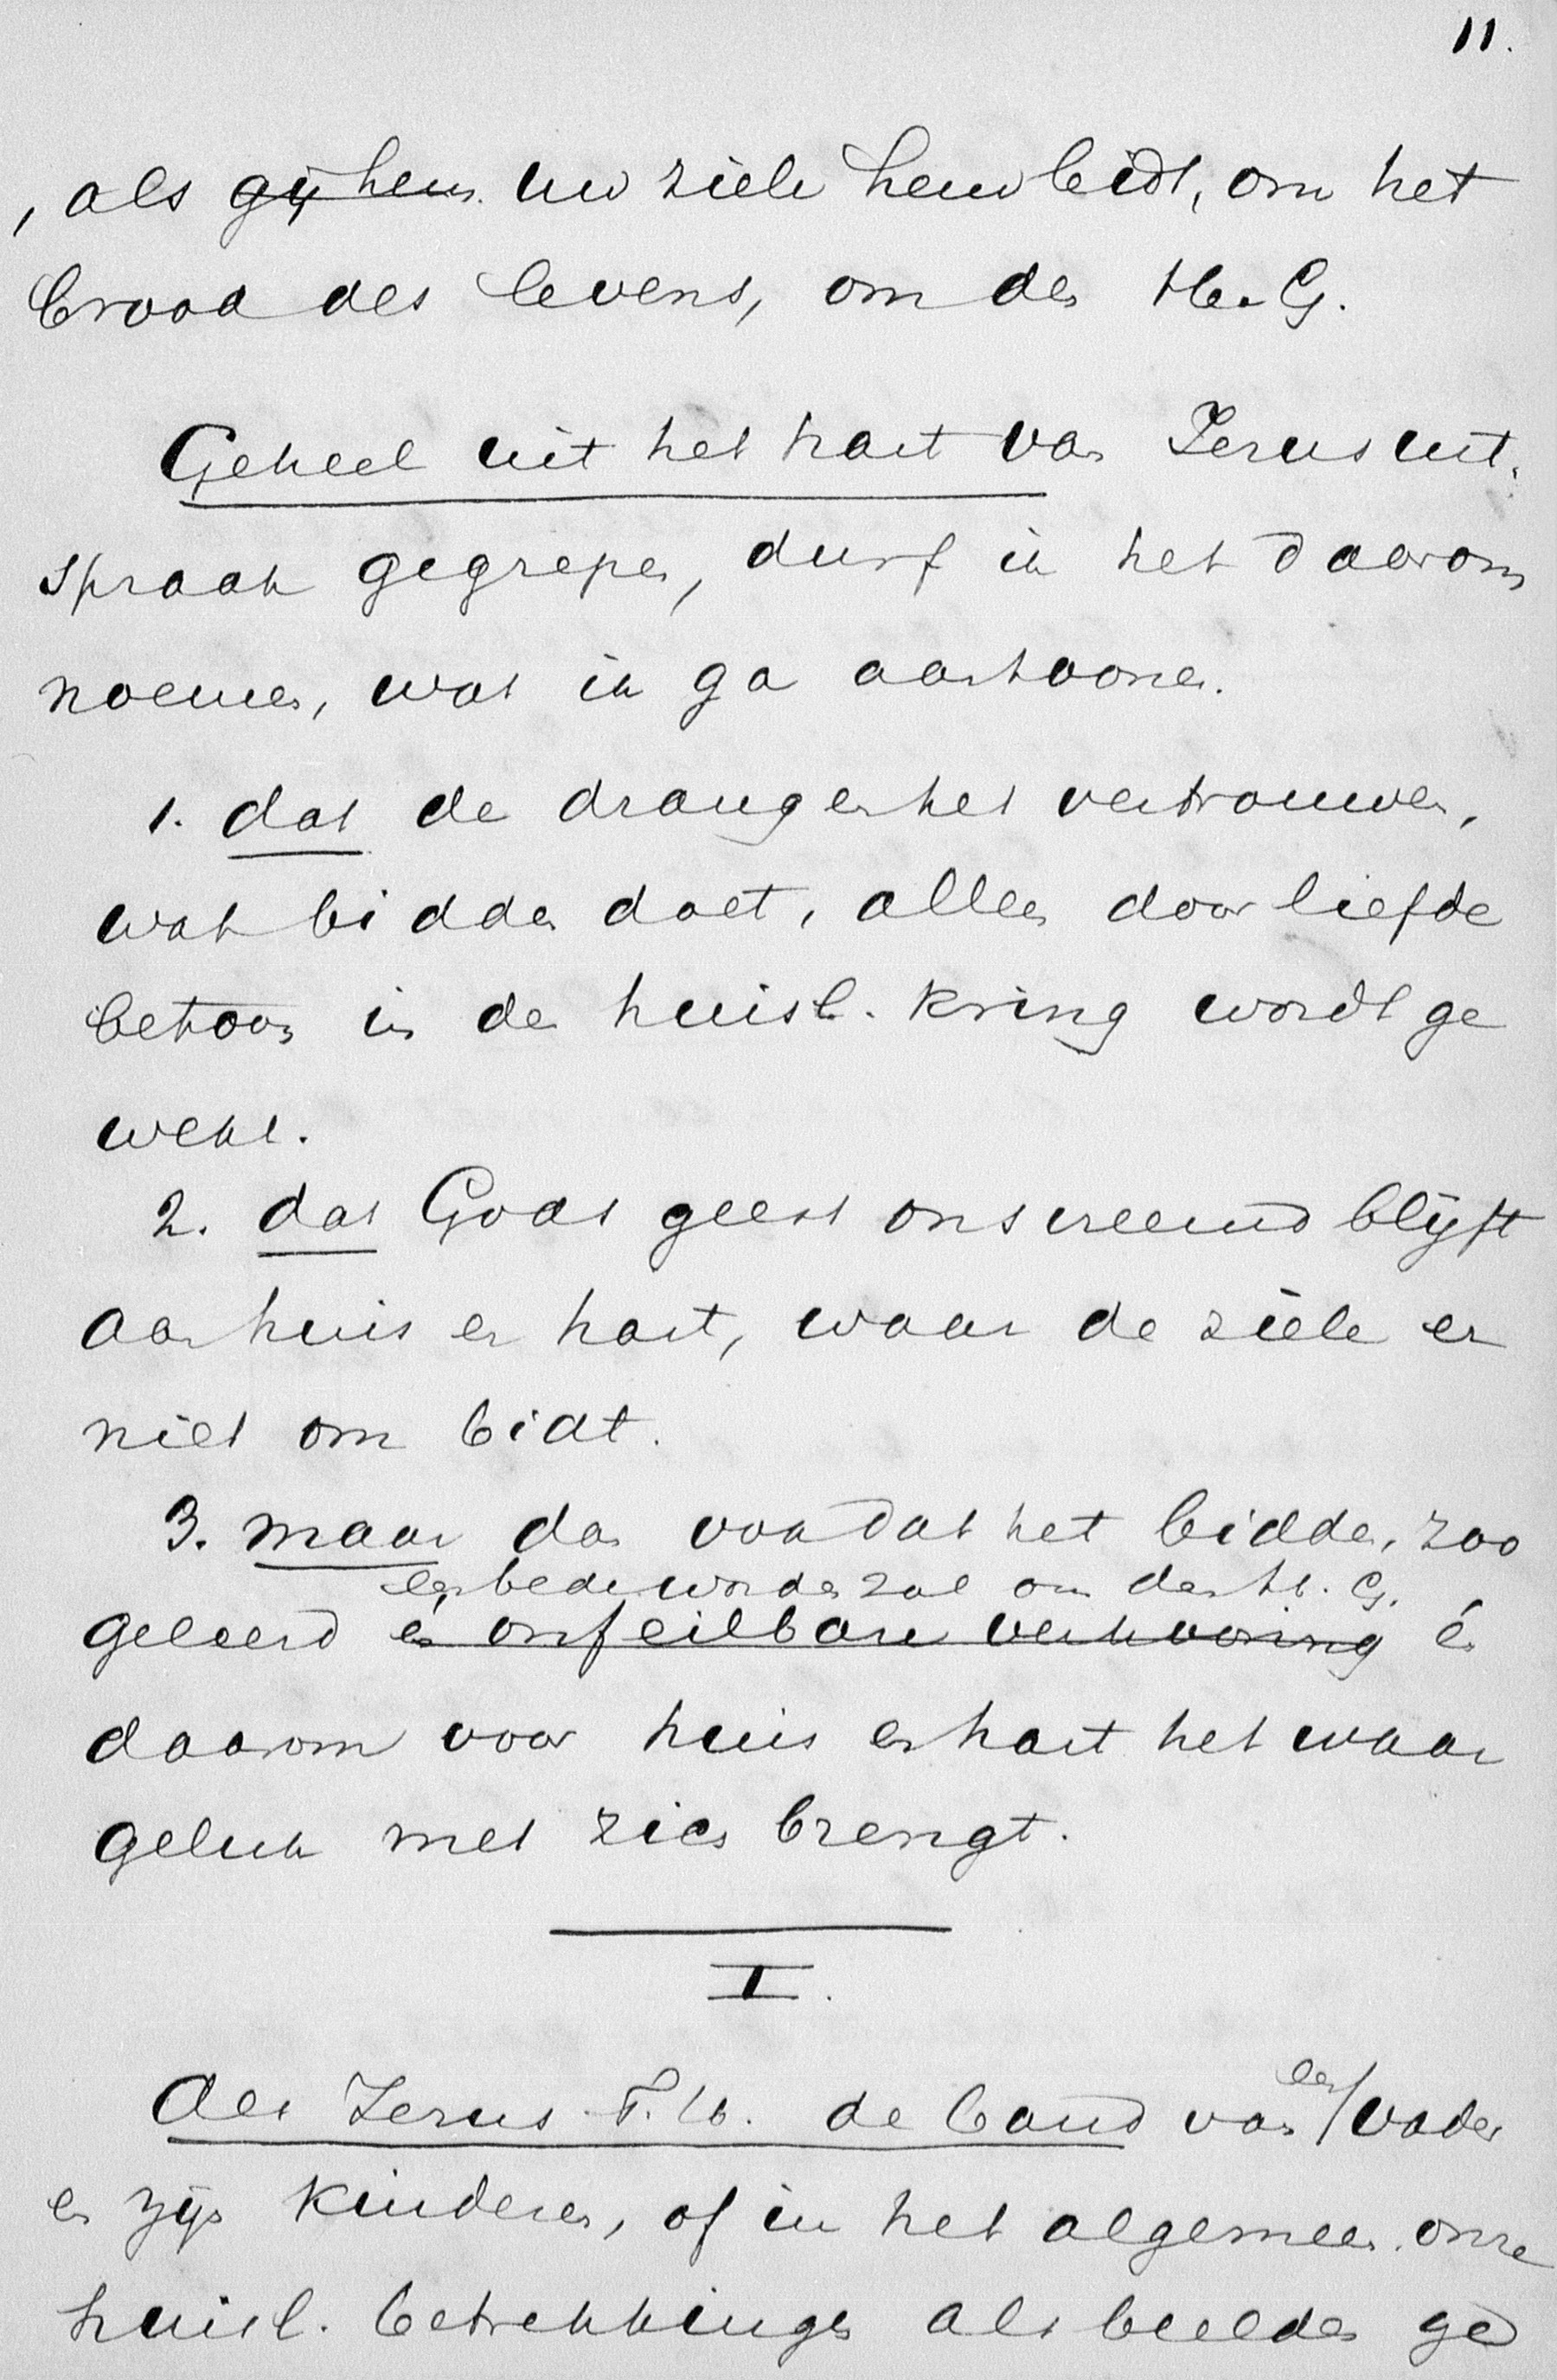 11.
, als gij hem uw ziele hem bidt, om het
brood des levens, om den H. G.
Geheel uit het hart van Jezus uit-
spraak gegrepen, durf ik het daarom
noemen, wat ik ga aantoonen.
1. dat de drang en het vertrouwen,
wat bidden doet, alleen door liefde
betoon in den huisl. kring wordt ge
wekt.
2. dat Gods geest ons vreemd blijft
aan huis en hart, waar de ziele er
niet om bidt.
3. maar dan ook dat het bidden, zoo
een bede worden zal om den H. G.
geleerd én onfeilbare verhooring én
daarom voor huis en hart het waar
geluk met zich brengt.
I.
Als Jezus t. w. de band van een vader
en zijn kinderen, of in het algemeen onze
huisl. betrekkingen als beelden ge